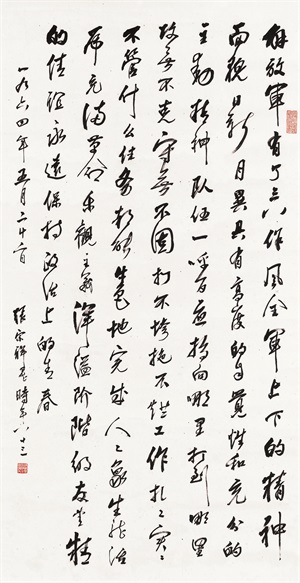 解放軍有了三八作风全軍上下的精神
面貌日新月異具有高度的自覺性和充分的
主動精神队伍一呼百应指向哪里打到哪里
攻无不克守无不固打不垮拖不烂工作扎扎实实
不管什么任务都能出色地完成人人象生龙活
虎充满革命乐觀主義洋溢階级友爱精
的情谊永遠保持政治上的青春
一九六四年五月二十二日
張宗祥書時年八十三